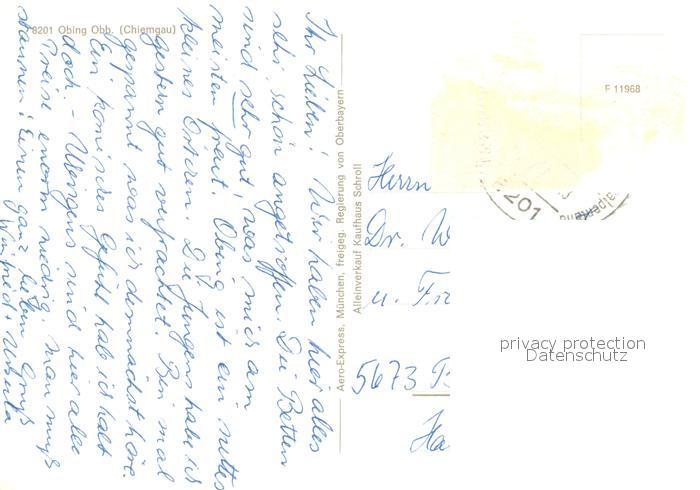 8201 Obing Obb. (Chiemgau)
Ihr Lieben! Wir haben hier alles
sehr schön angetroffen. Die Betten
sind sehr gut, was mich am
meisten freut. Obing ist ein nettes
kleines Örtchen. Die Jungens habe ich
gestern gut verfrachtet. Bin mal
gespannt was ich demnächst höre.
Ein komisches Gefühl hab ich halt
doch. - Übrigens sind hier alle
Preise enorm niedrig. Man muß
staunen! Einen ganz lieben Gruß
Winfried + Ursula
Aero-Express, München, freigeg. Regierung von Oberbayern
Alleinverkauf Kaufhaus Schroll
F 11968
201
Herrn
Dr. W
u. Fr
5673 B
Ha
privacy protection
Datenschutz